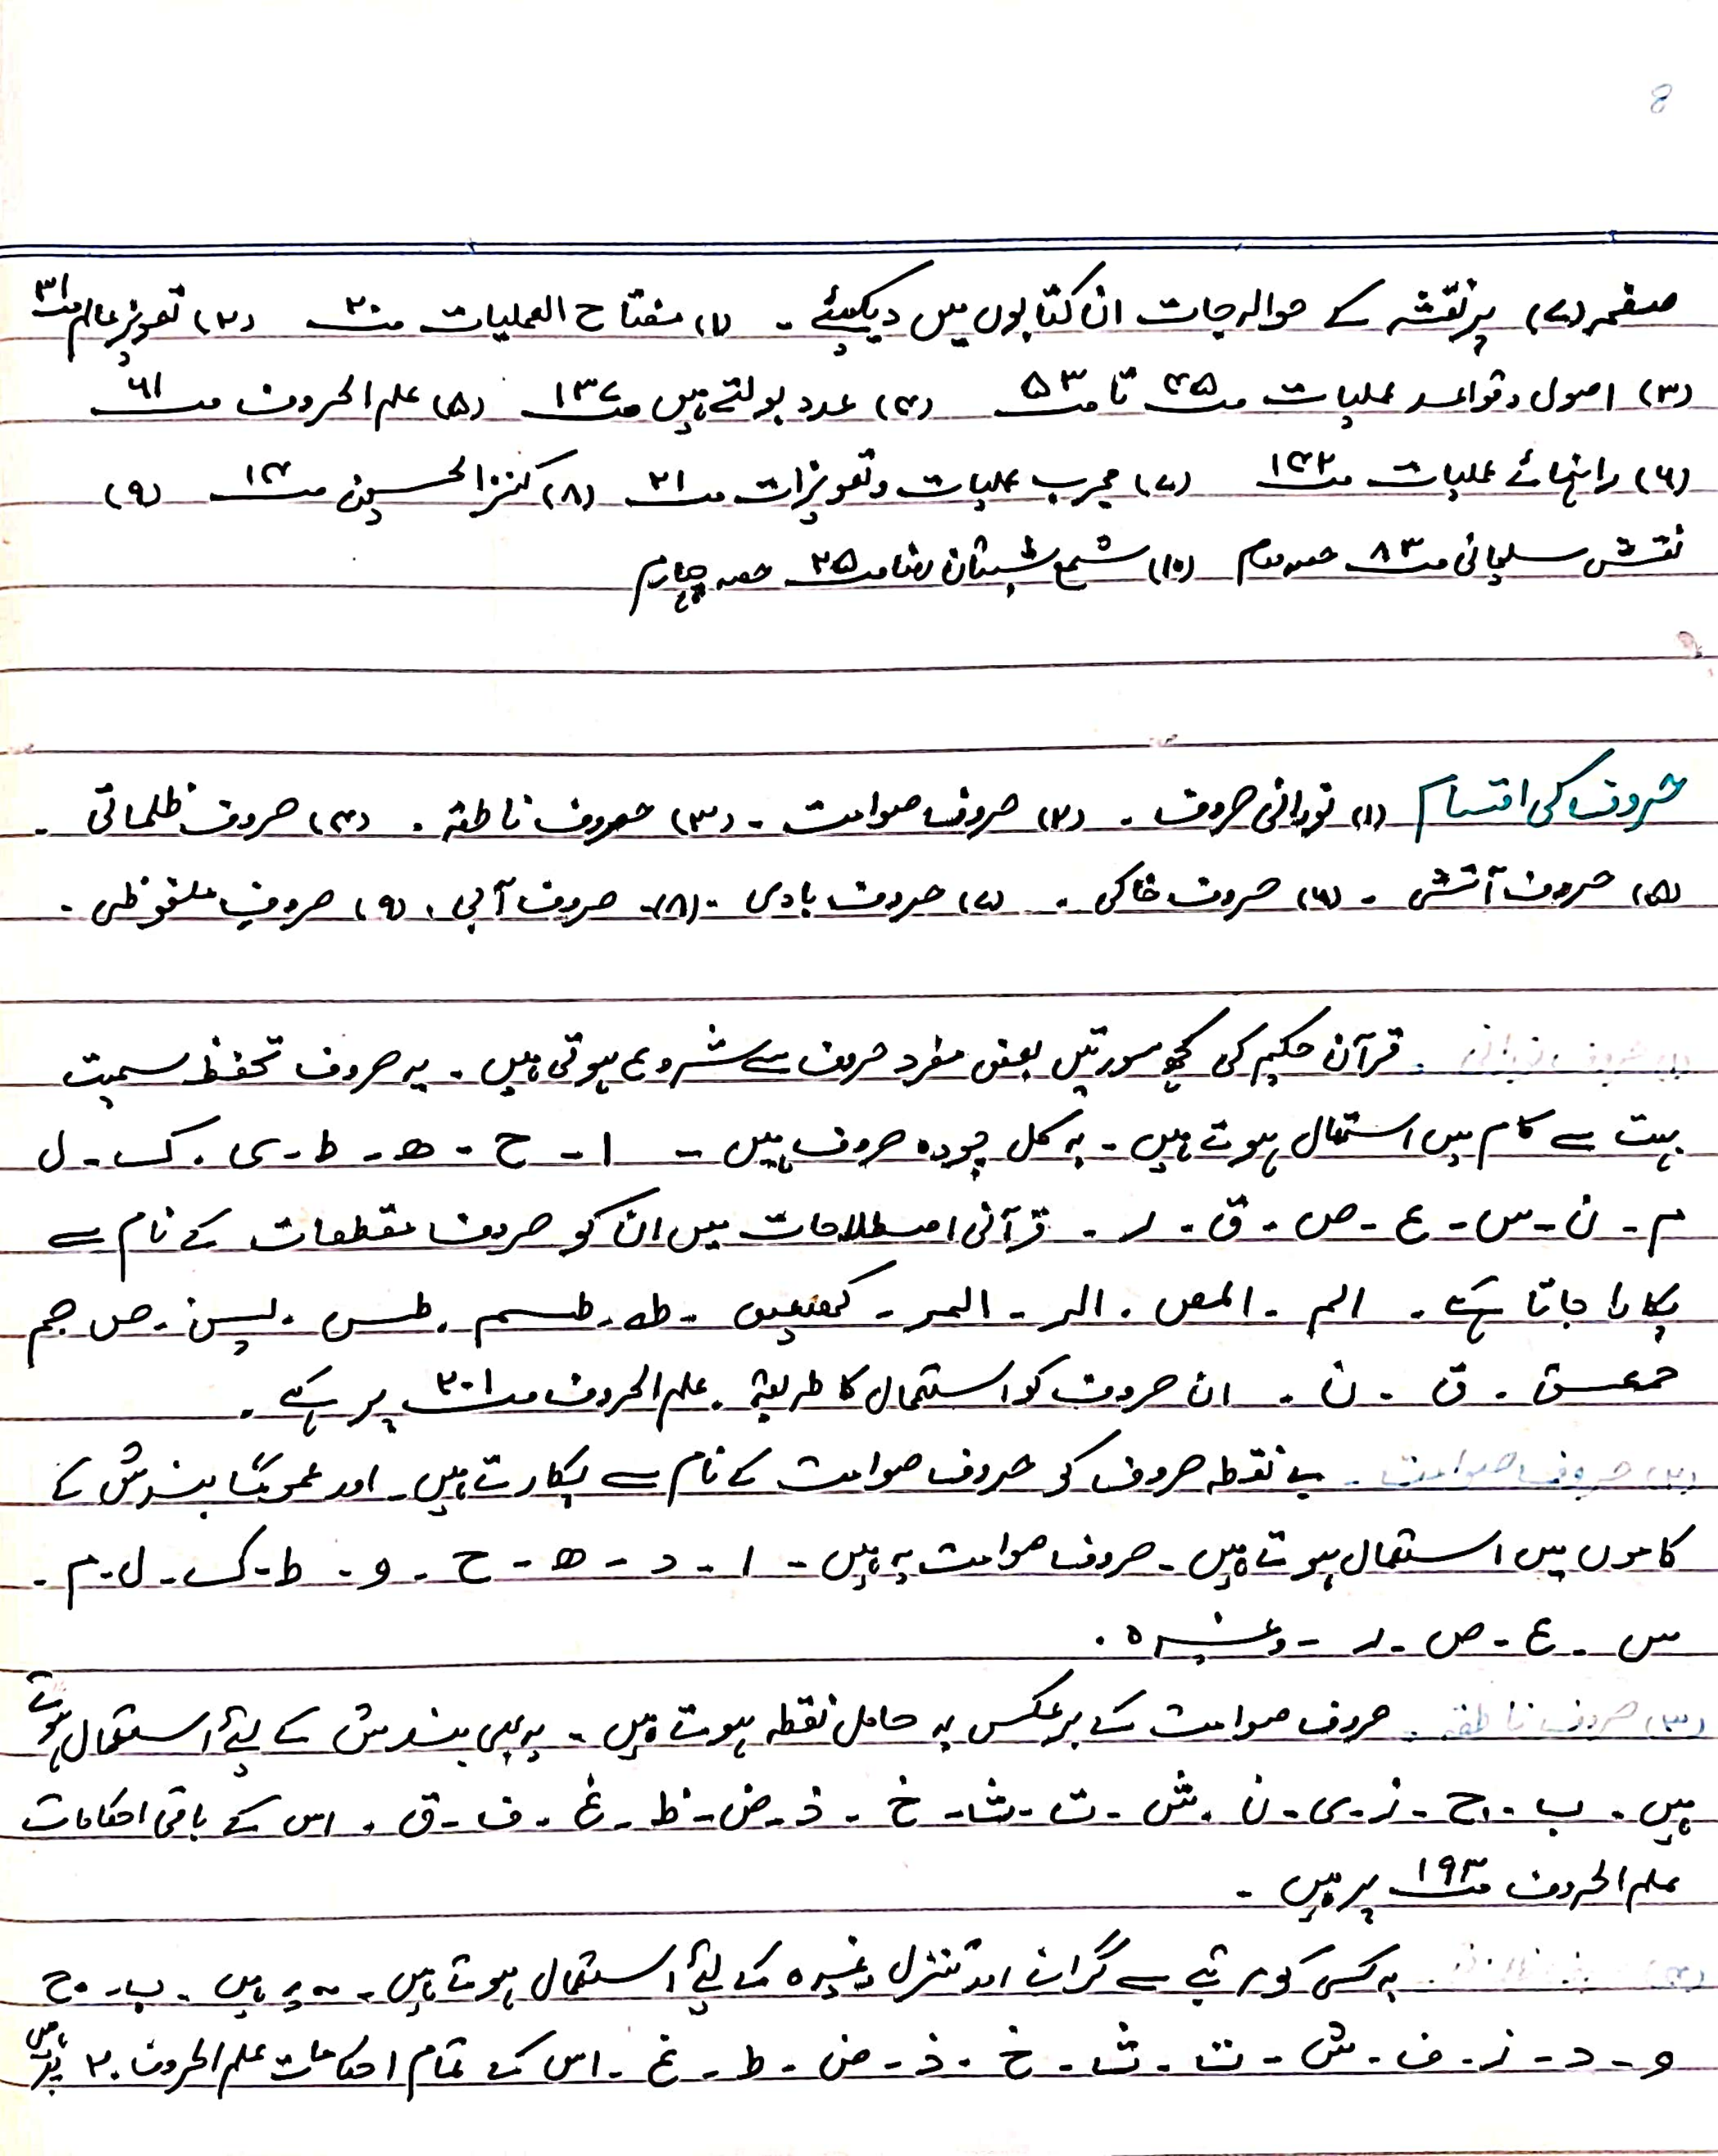 8
صفحہ (۷) پر نقشہ کے حوالہ جات ان کتابوں میں دیکھیئے ۔ (۱) مفتاح العملیات صـ ۲۰ (۲) تعویز عالم صـ ۳۱
(۳) اصول وقواعد عملیات صـ ۴۵ تا صـ ۵۳ (۴) عدد بولتے ہیں صـ ۱۳۷ (۵) علم الحروف صـ ۶۱
(۶) راہنمائے عملیات صـ ۱۴۲ (۷) مجرب عملیات وتعویزات صـ ۲۱ (۸) کنزالحسین صـ ۱۴ (۹)
نقش سلیمانی صـ ۸۳ حصہ دوم (۱۰) شمع شبستان رضا صـ ۲۵ حصہ چہارم
حروف کی اقسام (۱) نورانی حروف ۔ (۲) حروف صوامت ۔ (۳) حروف ناطقہ ۔ (۴) حروف ظلماتی ۔
(۵) حروف آتشی ۔ (۶) حروف خاکی ۔ (۷) حروف بادی ۔ (۸) حروف آبی ۔ (۹) حروف ملفوظی ۔
قرآن حکیم کی کچھ سورتیں بعض مفرد حروف سے شروع ہوتی ہیں ۔ یہ حروف تحفظ سمیت
بہت سے کام میں استعمال ہوتے ہیں ۔ یہ کل چودہ حروف ہیں ۔ ا ۔ ح ۔ ھ ۔ ط ۔ ی ۔ ک ۔ ل
م ۔ ن ۔ س ۔ ع ۔ ص ۔ ق ۔ ر ۔ قرآنی اصطلاحات میں ان کو حروف مقطعات کے نام سے
پکارا جاتا ہے ۔ الم ۔ المص ۔ الر ۔ المر ۔ کھیعص ۔ طہ ۔ طسم ۔ طس ۔ یس ۔ ص حم
حمعسق ۔ ق ۔ ن ۔ ان حروف کو استعمال کا طریقہ ۔ علم الحروف صـ ۲۰۱ پر ہے ۔
(۲) حروف صوامت ۔ بے نقطہ حروف کو حروف صوامت کے نام سے پکارتے ہیں ۔ اور عموماً بندش کے
کاموں میں استعمال ہوتے ہیں ۔ حروف صوامت یہ ہیں ۔ ا ۔ د ۔ ھ ۔ ح ۔ و ۔ ط ۔ ک ۔ ل ۔ م ۔
س ۔ ع ۔ ص ۔ ر ۔ وغیرہ ۔
(۳) حروف ناطقہ ۔ حروف صوامت کے برعکس یہ حامل نقطہ ہوتے ہیں ۔ یہ بھی بندش کے لیئے استعمال ہوتے
ہیں ۔ ب ۔ ج ۔ ز ۔ ی ۔ ن ۔ ش ۔ ت ۔ ث ۔ خ ۔ ذ ۔ ض ۔ ظ ۔ غ ۔ ف ۔ ق ۔ اس کے باقی احکامات
علم الحروف صـ ۱۹۳ پر ہیں ۔
یہ کسی کو مرتبے سے گرانے اور تنزل وغیرہ کے لیئے استعمال ہوتے ہیں ۔ یہ ہیں ۔ ب ۔ ج
و ۔ د ۔ ز ۔ ف ۔ ش ۔ ت ۔ ث ۔ خ ۔ ذ ۔ ض ۔ ط ۔ غ ۔ اس کے تمام احکامات علم الحروف